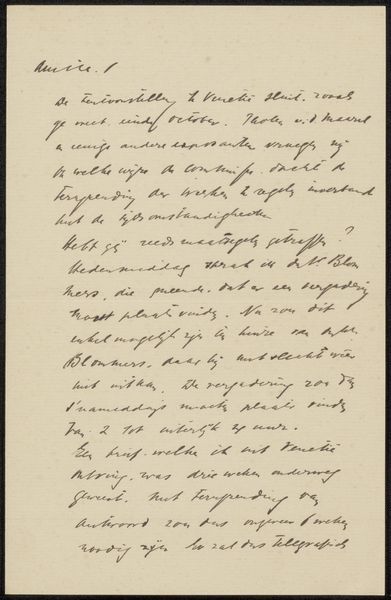 Amice. /
De tentoonstelling te Venetië sluit. zooals
ge weet. einde October. Tholen v.d Maarel
en eenige andere exposanten vroegen mij
op welke wijze de Commissie. dacht de
terugzending der werken te regelen in verband
met de tijdsomstandigheden
Hebt gij reeds maatregelen getroffen?
Hedenmiddag sprak ik den Hr. Blom
mers, die meende. dat er een vergadering
moest plaats vinden. Nu zou dit
enkel mogelijk zijn ten huize van
Blommers, daar hij met slecht weer
niet uitkan. De vergadering zou dan
s'namiddags moeten plaats vinden
van 2 tot uiterlijk 4 uur.
Een brief. welke ik uit Venetië
ontving. was drie weken onderweg
geweest. Met terugzending van
antwoord zou dus ongeveer 6 weken
noodig zijn. Er zal dus telegrafisch